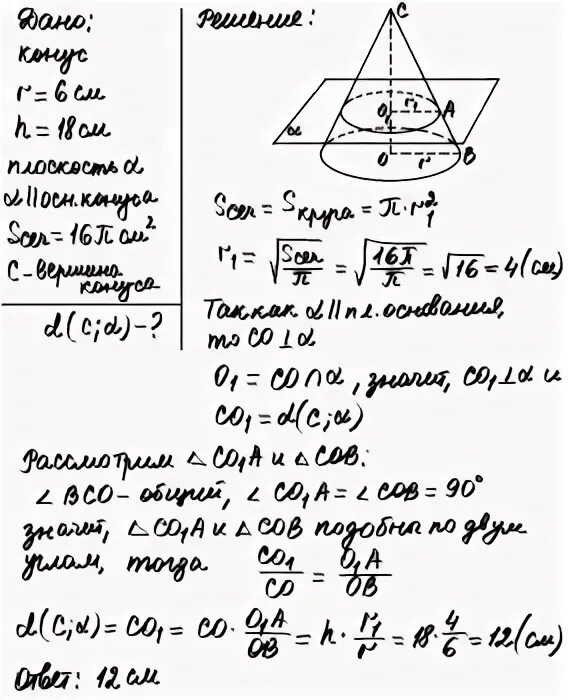 Дано:
конус
r = 6 см
h = 18 см
плоскость α
α || осн. конуса
Sсеч = 16π см²
С - вершина
конуса
d(C;α) - ?
Решение:
C
O₁ r₁ A
α
O r B
Sсеч = Sкруга = π·r₁²
r₁ = √(Sсеч/π) = √(16π/π) = √16 = 4 (см)
Так как α || пл. основания,
то CO ⊥ α
O₁ = CO ∩ α, значит, CO₁ ⊥ α и
CO₁ = d(C;α)
Рассмотрим △CO₁A и △COB:
∠BCO - общий, ∠CO₁A = ∠COB = 90°
значит, △CO₁A и △COB подобны по двум
углам, тогда CO₁/CO = O₁A/OB
d(C;α) = CO₁ = CO · O₁A/OB = h · r₁/r = 18 · 4/6 = 12 (см)
Ответ: 12 см